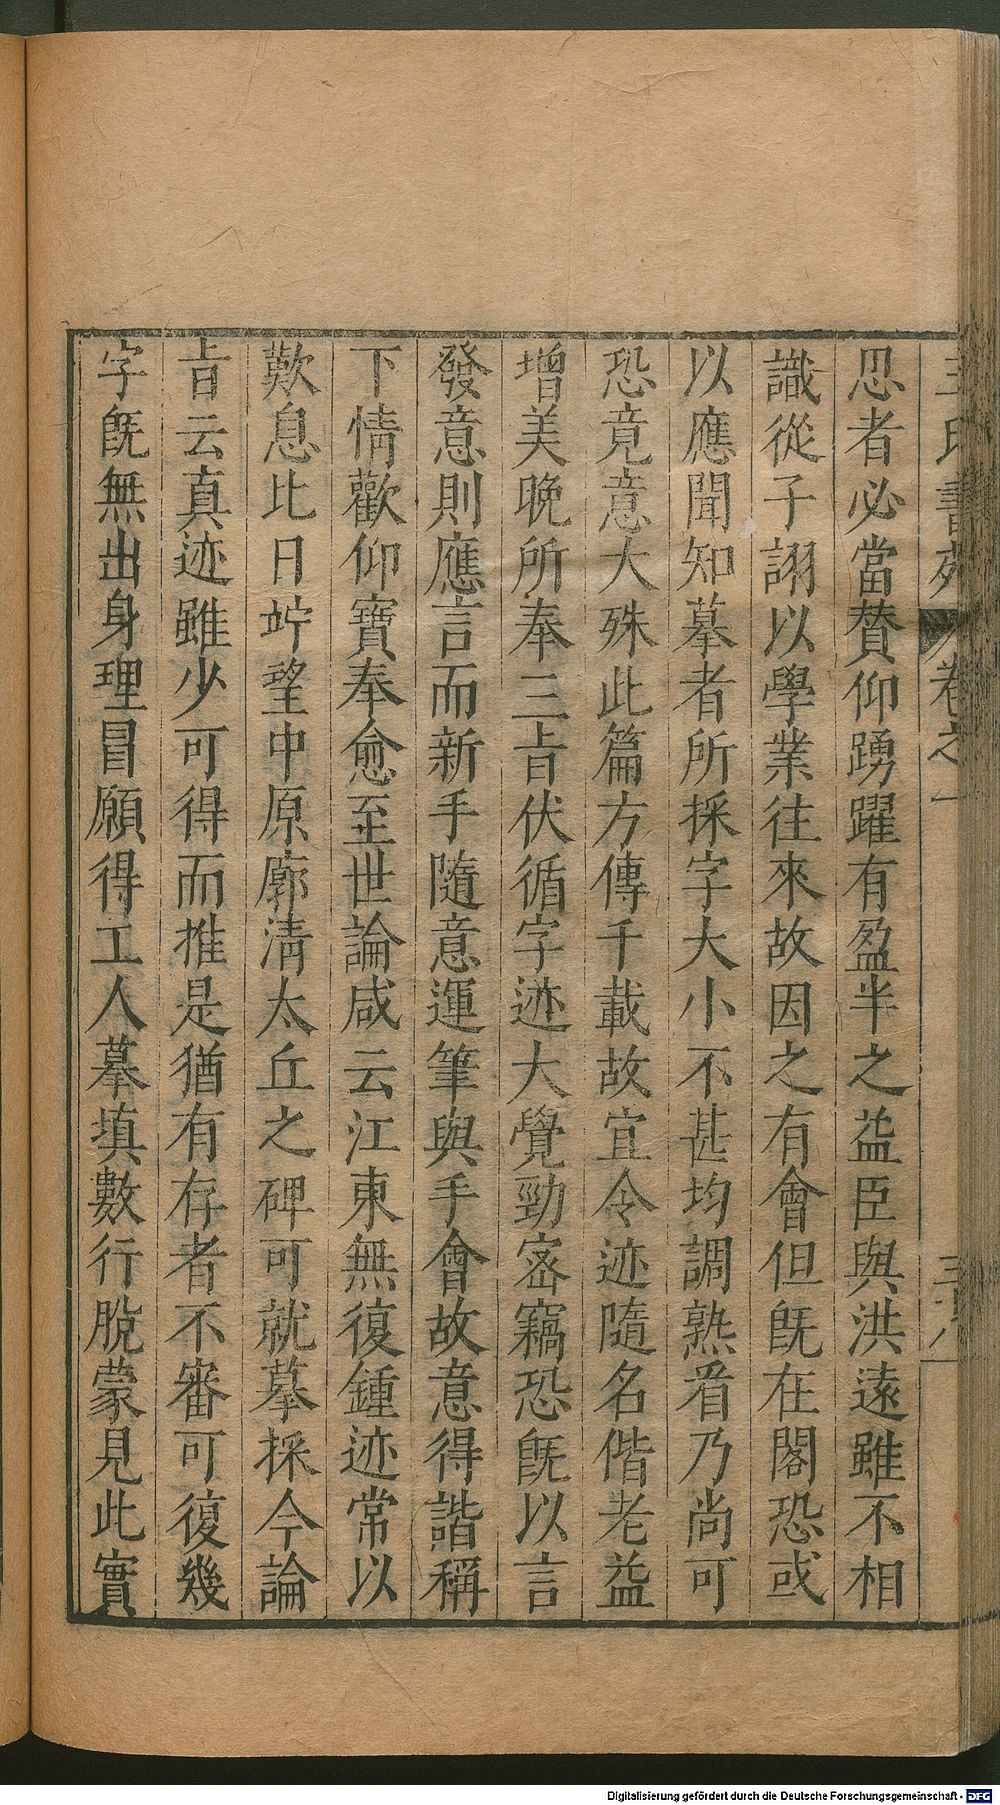 王氏書苑 卷之一
忍者必當賛仰踴躍有盈半之益臣與洪遠雖不相
識從子詡以學業往來故因之有會但旣在閣恐或
以應聞知摹者所採字大小不甚均調熟看乃尚可
恐竟意大殊此篇方傳千載故宜令迹隨名偕老益
增美晚所奉三旨伏循字迹大覺勁密竊恐旣以言
發意則應言而新手隨意運筆與手會故意得諧稱
下情歡仰寶奉愈至世論咸云江東無復鍾迹常以
歎息比日竚望中原廓清太丘之碑可就摹採今論
旨云真迹雖少可得而推是猶有存者不審可復幾
字旣無出身理冒願得工人摹填數行脫蒙見此實
Digitalisierung gefördert durch die Deutsche Forschungsgemeinschaft - DFG